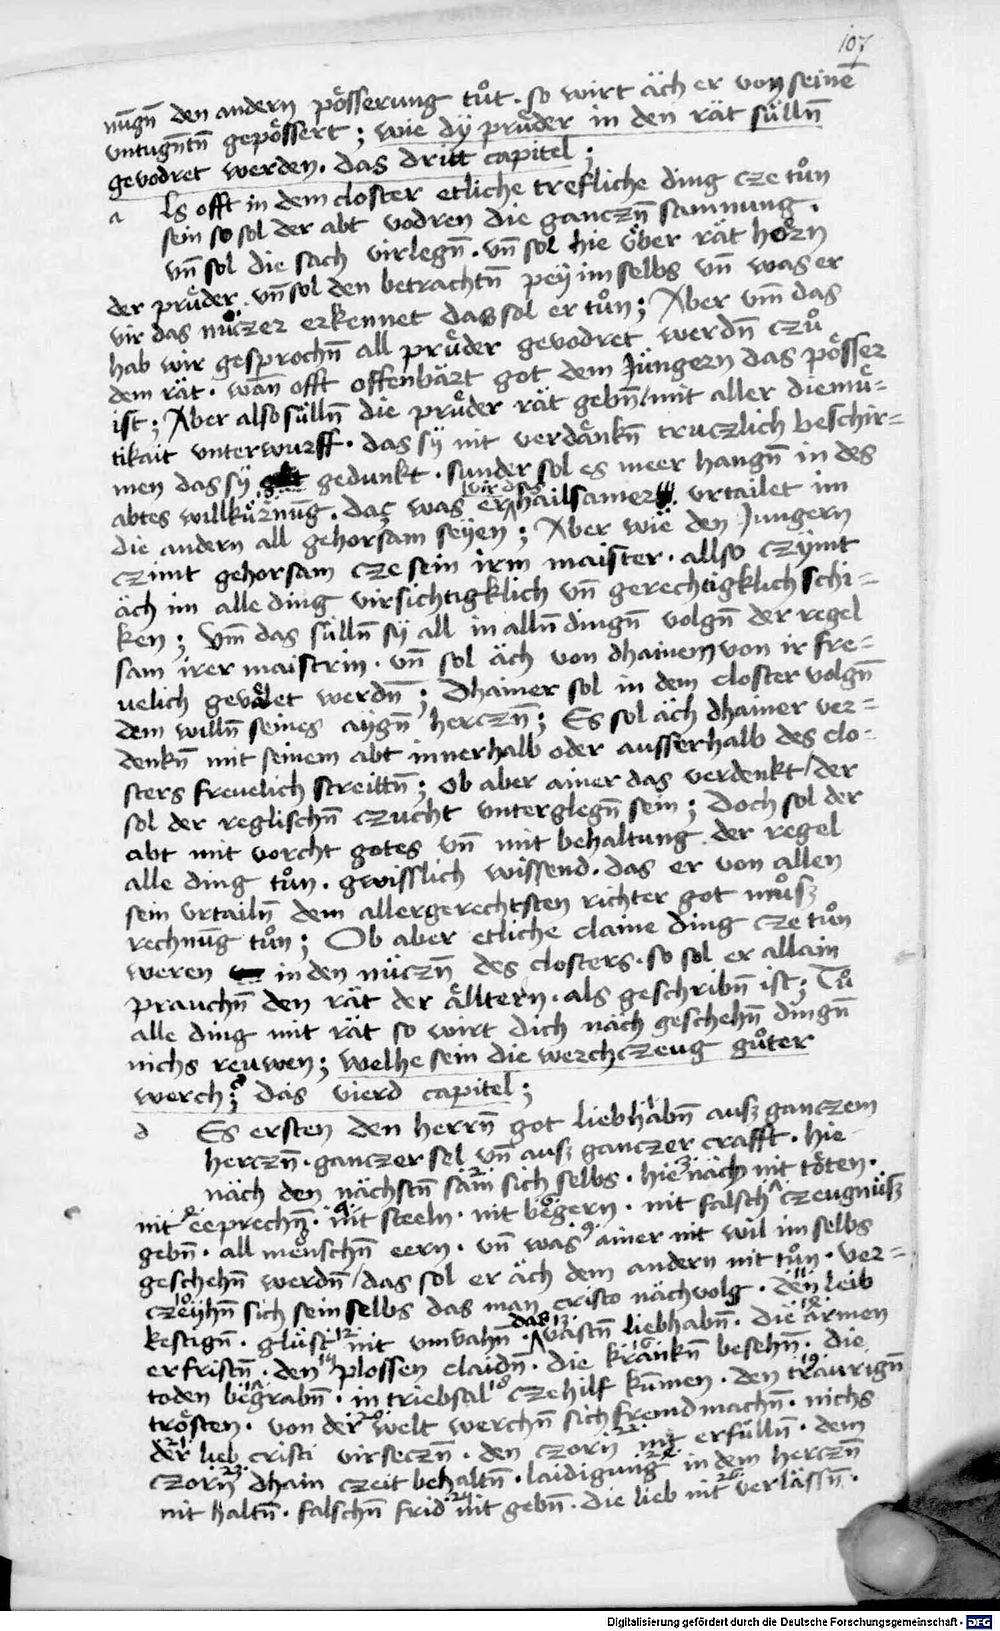 107
nūgn̄ den andern pösserung tůt · so wirt äch er von seinē
vntugn̄tn̄ gepössert ; wie dÿ prüder in den rät sülln̄
gevodret werden · das dritt capitel ;
a ls offt in dem closter etliche trefliche ding cze tůn
sein so sol der abt vodren die ganczn̄ samnung ·
vn̄ sol die sach virlegn̄ · vn̄ sol hie vber rät hörn
der prüder · vn̄ sol den betrachtn̄ peÿ im selbs vn̄ was er
vir das nüczer erkennet das sol er tůn ; Aber vm̄ das
hab wir gesprochn̄ all prüder gevodret werdn̄ czů
dem rät · wān offt offenbärt got dem Jüngern das pösser
ist ; Aber also sülln̄ die prüder rät gebn̄ / mit aller diemü=
tikait vnterwurff · das sÿ nit verdänkn̄ truczlich beschir=
men das sÿ gedunkt · sunder sol es meer hangn̄ in des
abtes willkürnūg · daz was er vir das hailsamer vrtailet im
die andern all gehorsam seÿen ; Aber wie den Jungern
czimt gehorsam cze sein irm maister · allso czÿmt
äch im alle ding virsichtigklich vn̄ gerechtigklich schi=
ken ; Vm̄ das sülln̄ sÿ all in alln̄ dingn̄ volgn̄ der regel
sam irer maistrin · vn̄ sol äch von dhainem von ir fre=
uelich gevälet werdn̄ ; Dhainer sol in dem closter volgn̄
dem willn̄ seines aÿgn̄ herczn̄ ; Es sol äch dhainer ver=
denkn̄ mit seinem abt innerhalb oder ausserhalb des clo=
sters freuelich streittn̄ ; Ob aber ainer das verdenkt / der
sol der reglischn̄ czucht vnterglegn̄ sein ; Doch sol der
abt mit vorcht gotes vn̄ mit behaltung der regel
alle ding tůn · gwisslich wissend · das er von allen
sein vrtailn̄ dem allergerechtsten richter got můsz
rechnūg tůn ; Ob aber etliche claine ding cze tůn
weren in den nüczn̄ des closters · so sol er allain
prauchn̄ den rät der älltern · als geschribn̄ ist ; Tů
alle ding mit rät so wirt dich näch geschehn̄ dingn̄
nichs reuwen ; welhe sein die werchczeug gůter
werch ; das vierd capitel ;
d Es ersten den herrn̄ got liebhabn̄ ausz ganczem
herczn̄ · ganczer sel vn̄ ausz ganczer crafft · hie
näch den nächstn̄ sam sich selbs · hie näch nit töten ·
nit eeprechn̄ · nit steeln · nit begern · nit falsch czeugnüsz
gebn̄ · all menschn̄ eern · vn̄ was ainer nit wil im selbs
geschehn̄ werdn̄ / das sol er äch dem andern nit tůn · ver=
czeÿhn̄ sich sein selbs das man cristo nächvolg · den leib
kestign̄ · glüst nit vmvahn̄ · das vastn̄ liebhabn̄ · die armen
erfristn̄ · den plossen claidn̄ · die krankn̄ besehn̄ · die
toden begrabn̄ · in triebsal cze hilf kūmen · den traurign̄
trösten · von der welt werchn̄ sich fremd machn̄ · nichs
der lieb cristi virseczn̄ · den czorn nit erfülln̄ · dem
czorn dhain czeit behaltn̄ · laidigung in dem herczn̄
nit haltn̄ · falschn̄ frid nit gebn̄ · die lieb nit verlässn̄ ·
Digitalisierung gefördert durch die Deutsche Forschungsgemeinschaft - DFG